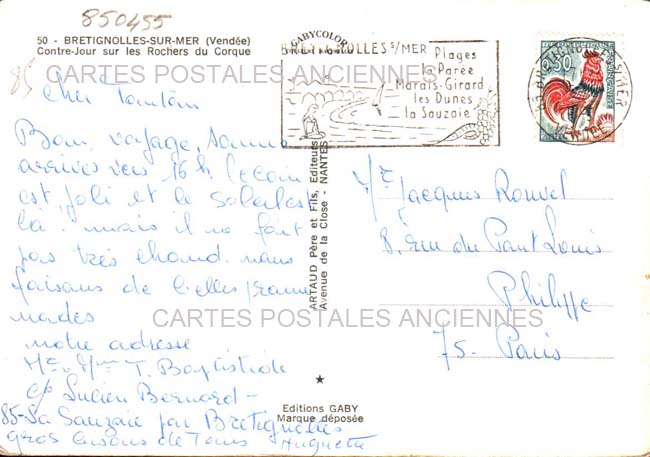 850455
50 - BRETIGNOLLES-SUR-MER (Vendée)
Contre-Jour sur les Rochers du Corque
85
CARTES POSTALES ANCIENNES
Cher Tonton
Bon voyage, sommes
arrivés vers 16 h. le coin
est joli et le soleil est
là. mais il ne fait
pas très chaud. nous
faisons de belles prome
nades
notre adresse
Mr Mme T. Baptiste
c/o Lucien Bernard -
85 - La Sauzaie par Bretignolles
gros bisous de Tous Huguette
GABYCOLOR
BRETIGNOLLES S/MER
Plages
la Parée
Marais-Girard
les Dunes
la Sauzaie
BRETIGNOLLES S/MER
VENDEE
0,30
ARTAUD Père et Fils, Editeurs
Avenue de la Close - NANTES
Mr Jacques Rouvel
8, rue du Pont Louis
Philippe
75 - Paris
CARTES POSTALES ANCIENNES
Editions GABY
Marque déposée